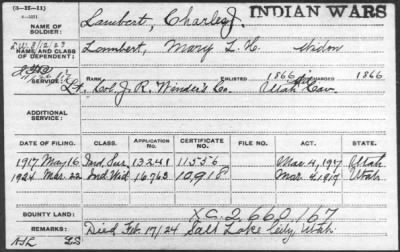 (3-IW-11)
3-3051
NAME OF SOLDIER:
Lambert, Charles J.
INDIAN WARS
P.W. 8/12/23
NAME AND CLASS OF DEPENDENT:
Lambert, Mary L. H. Widow
SERVICE:
RANK
ENLISTED 1866 DISCHARGED 1866
Lt. Col. J. R. Winder's Co. Utah Cav.
ADDITIONAL SERVICE:
DATE OF FILING. CLASS. APPLICATION NO. CERTIFICATE NO. FILE NO. ACT. STATE.
1917 May 16 Ind. Sur. 13241 11556 Mar. 4, 1917 Utah.
1924 Mar. 22 Ind. Wid. 16763 10,918 Mar. 4, 1917 Utah.
BOUNTY LAND:
XC 2,660,167
REMARKS: Died Feb. 17/24 Salt Lake City, Utah.